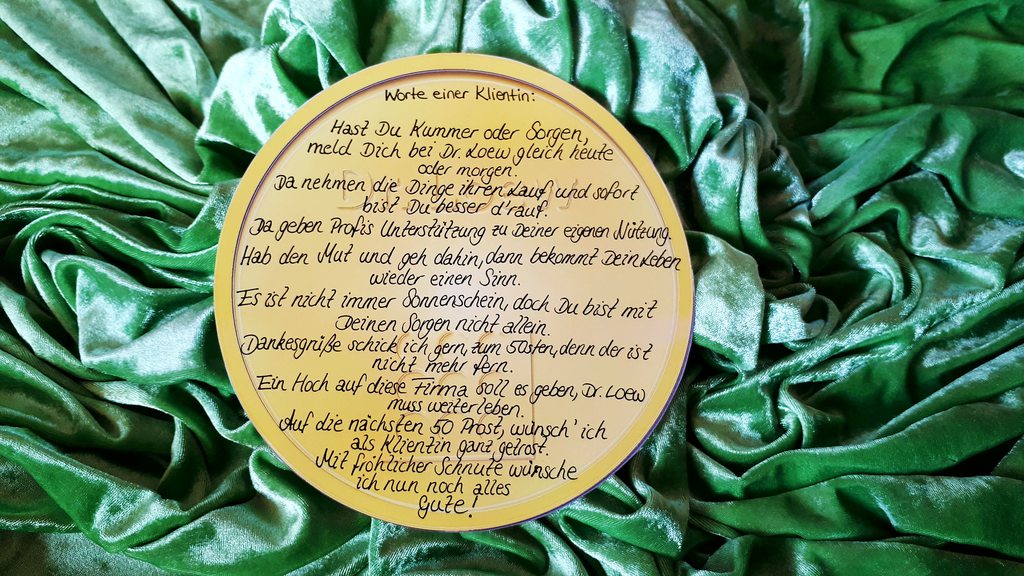 Worte einer Klientin:
Hast Du Kummer oder Sorgen,
meld Dich bei Dr. Loew gleich heute
oder morgen.
Da nehmen die Dinge ihren Lauf und sofort
bist Du besser d'rauf.
Da geben Profis Unterstützung zu Deiner eigenen Nützung.
Hab den Mut und geh dahin, dann bekommt Dein Leben
wieder einen Sinn.
Es ist nicht immer Sonnenschein, doch Du bist mit
Deinen Sorgen nicht allein.
Dankesgrüße schick ich gern, zum 50sten, denn der ist
nicht mehr fern.
Ein Hoch auf diese Firma soll es geben, Dr. Loew
muss weiterleben.
Auf die nächsten 50 Prost, wünsch' ich
als Klientin ganz getrost.
Mit fröhlicher Schnute wünsche
ich nun noch alles
Gute!